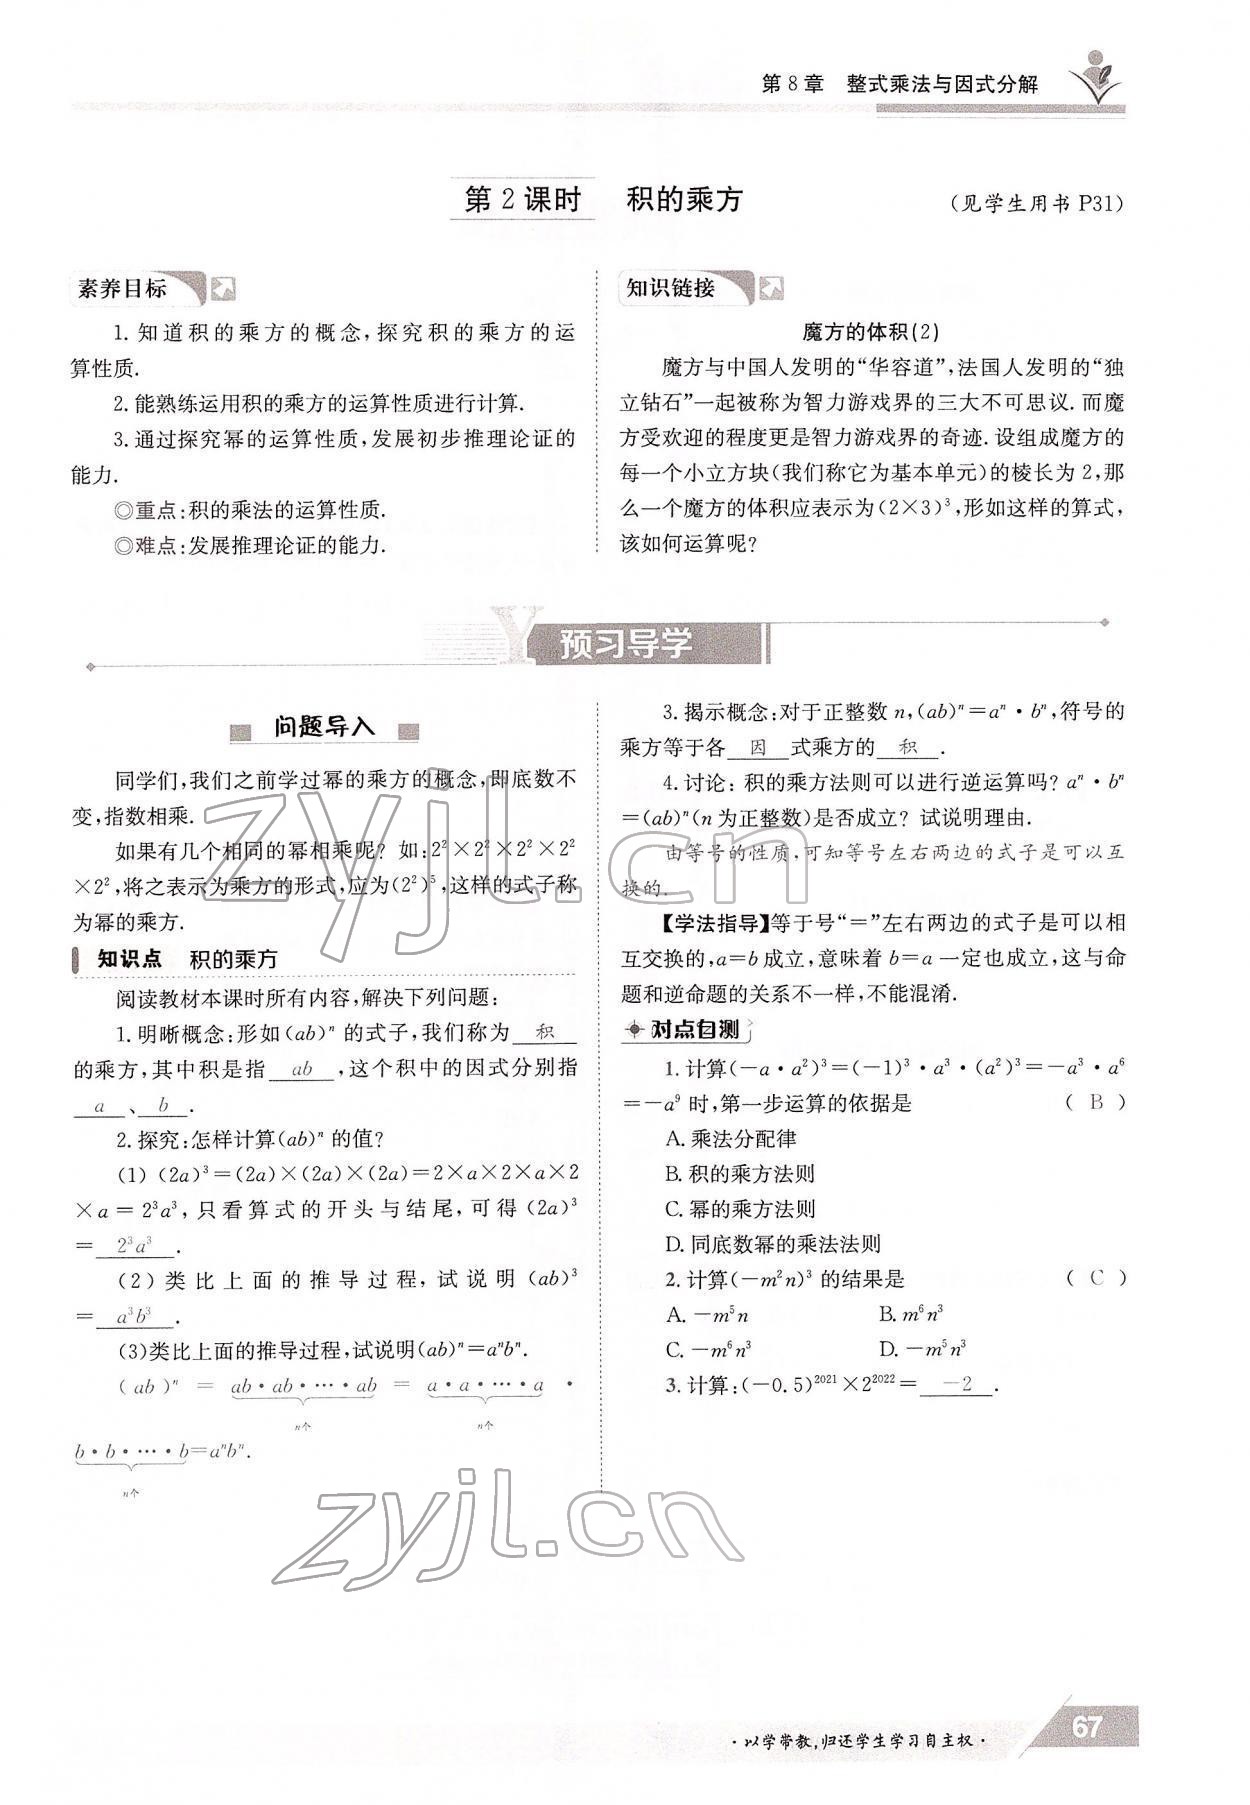 第8章　整式乘法与因式分解
第2课时　积的乘方　(见学生用书 P31)
素养目标
1. 知道积的乘方的概念,探究积的乘方的运
算性质.
2. 能熟练运用积的乘方的运算性质进行计算.
3. 通过探究幂的运算性质,发展初步推理论证的
能力.
◎重点:积的乘法的运算性质.
◎难点:发展推理论证的能力.
知识链接
魔方的体积(2)
魔方与中国人发明的“华容道”,法国人发明的“独
立钻石”一起被称为智力游戏界的三大不可思议. 而魔
方受欢迎的程度更是智力游戏界的奇迹. 设组成魔方的
每一个小立方块(我们称它为基本单元)的棱长为2,那
么一个魔方的体积应表示为(2×3)³,形如这样的算式,
该如何运算呢?
Y 预习导学
问题导入
同学们,我们之前学过幂的乘方的概念,即底数不
变,指数相乘.
如果有几个相同的幂相乘呢? 如:2²×2²×2²×2²
×2²,将之表示为乘方的形式,应为(2²)⁵,这样的式子称
为幂的乘方.
知识点　积的乘方
阅读教材本课时所有内容,解决下列问题:
1. 明晰概念:形如(ab)ⁿ 的式子,我们称为 积
的乘方,其中积是指 ab ,这个积中的因式分别指
a 、 b .
2. 探究:怎样计算(ab)ⁿ 的值?
(1) (2a)³=(2a)×(2a)×(2a)=2×a×2×a×2
×a=2³a³,只看算式的开头与结尾,可得(2a)³
= 2³a³ .
(2) 类比上面的推导过程,试说明(ab)³
= a³b³ .
(3)类比上面的推导过程,试说明(ab)ⁿ=aⁿbⁿ.
(ab)ⁿ = ab·ab·…·ab = a·a·…·a ·
n个　n个
b·b·…·b=aⁿbⁿ.
n个
3. 揭示概念:对于正整数 n,(ab)ⁿ=aⁿ·bⁿ,符号的
乘方等于各 因 式乘方的 积 .
4. 讨论: 积的乘方法则可以进行逆运算吗? aⁿ·bⁿ
=(ab)ⁿ(n 为正整数)是否成立? 试说明理由.
由等号的性质,可知等号左右两边的式子是可以互
换的.
【学法指导】等于号“=”左右两边的式子是可以相
互交换的,a=b 成立,意味着 b=a 一定也成立,这与命
题和逆命题的关系不一样,不能混淆.
对点自测
1. 计算(-a·a²)³=(-1)³·a³·(a²)³=-a³·a⁶
=-a⁹ 时,第一步运算的依据是　( B )
A. 乘法分配律
B. 积的乘方法则
C. 幂的乘方法则
D. 同底数幂的乘法法则
2. 计算(-m²n)³ 的结果是　( C )
A. -m⁵n　B. m⁶n³
C. -m⁶n³　D. -m⁵n³
3. 计算:(-0.5)²⁰²¹×2²⁰²²= -2 .
zyjl.cn
zyjl.cn
·以学常教,归还学生学习自主权·
67